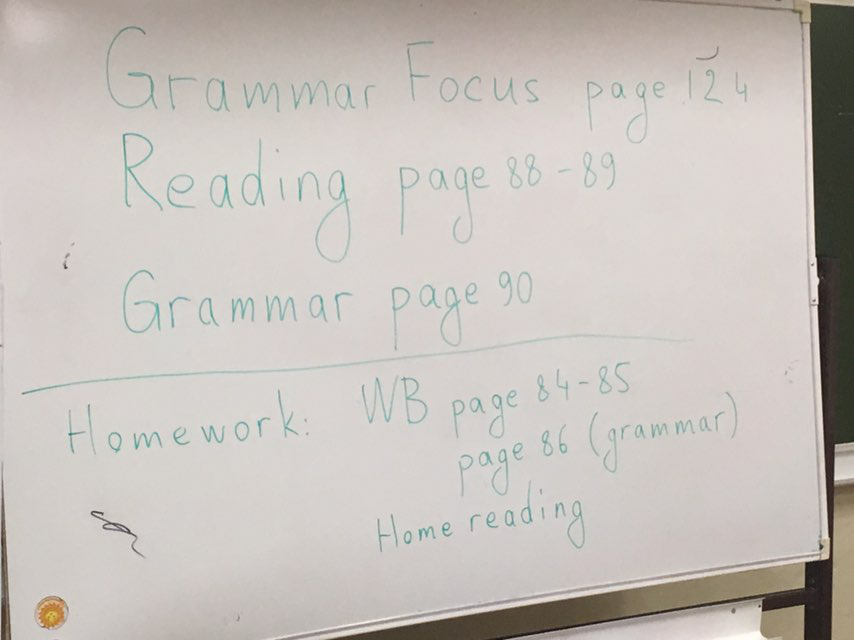 Grammar Focus page 124
Reading page 88-89
Grammar page 90
Homework: WB page 84-85
page 86 (grammar)
Home reading